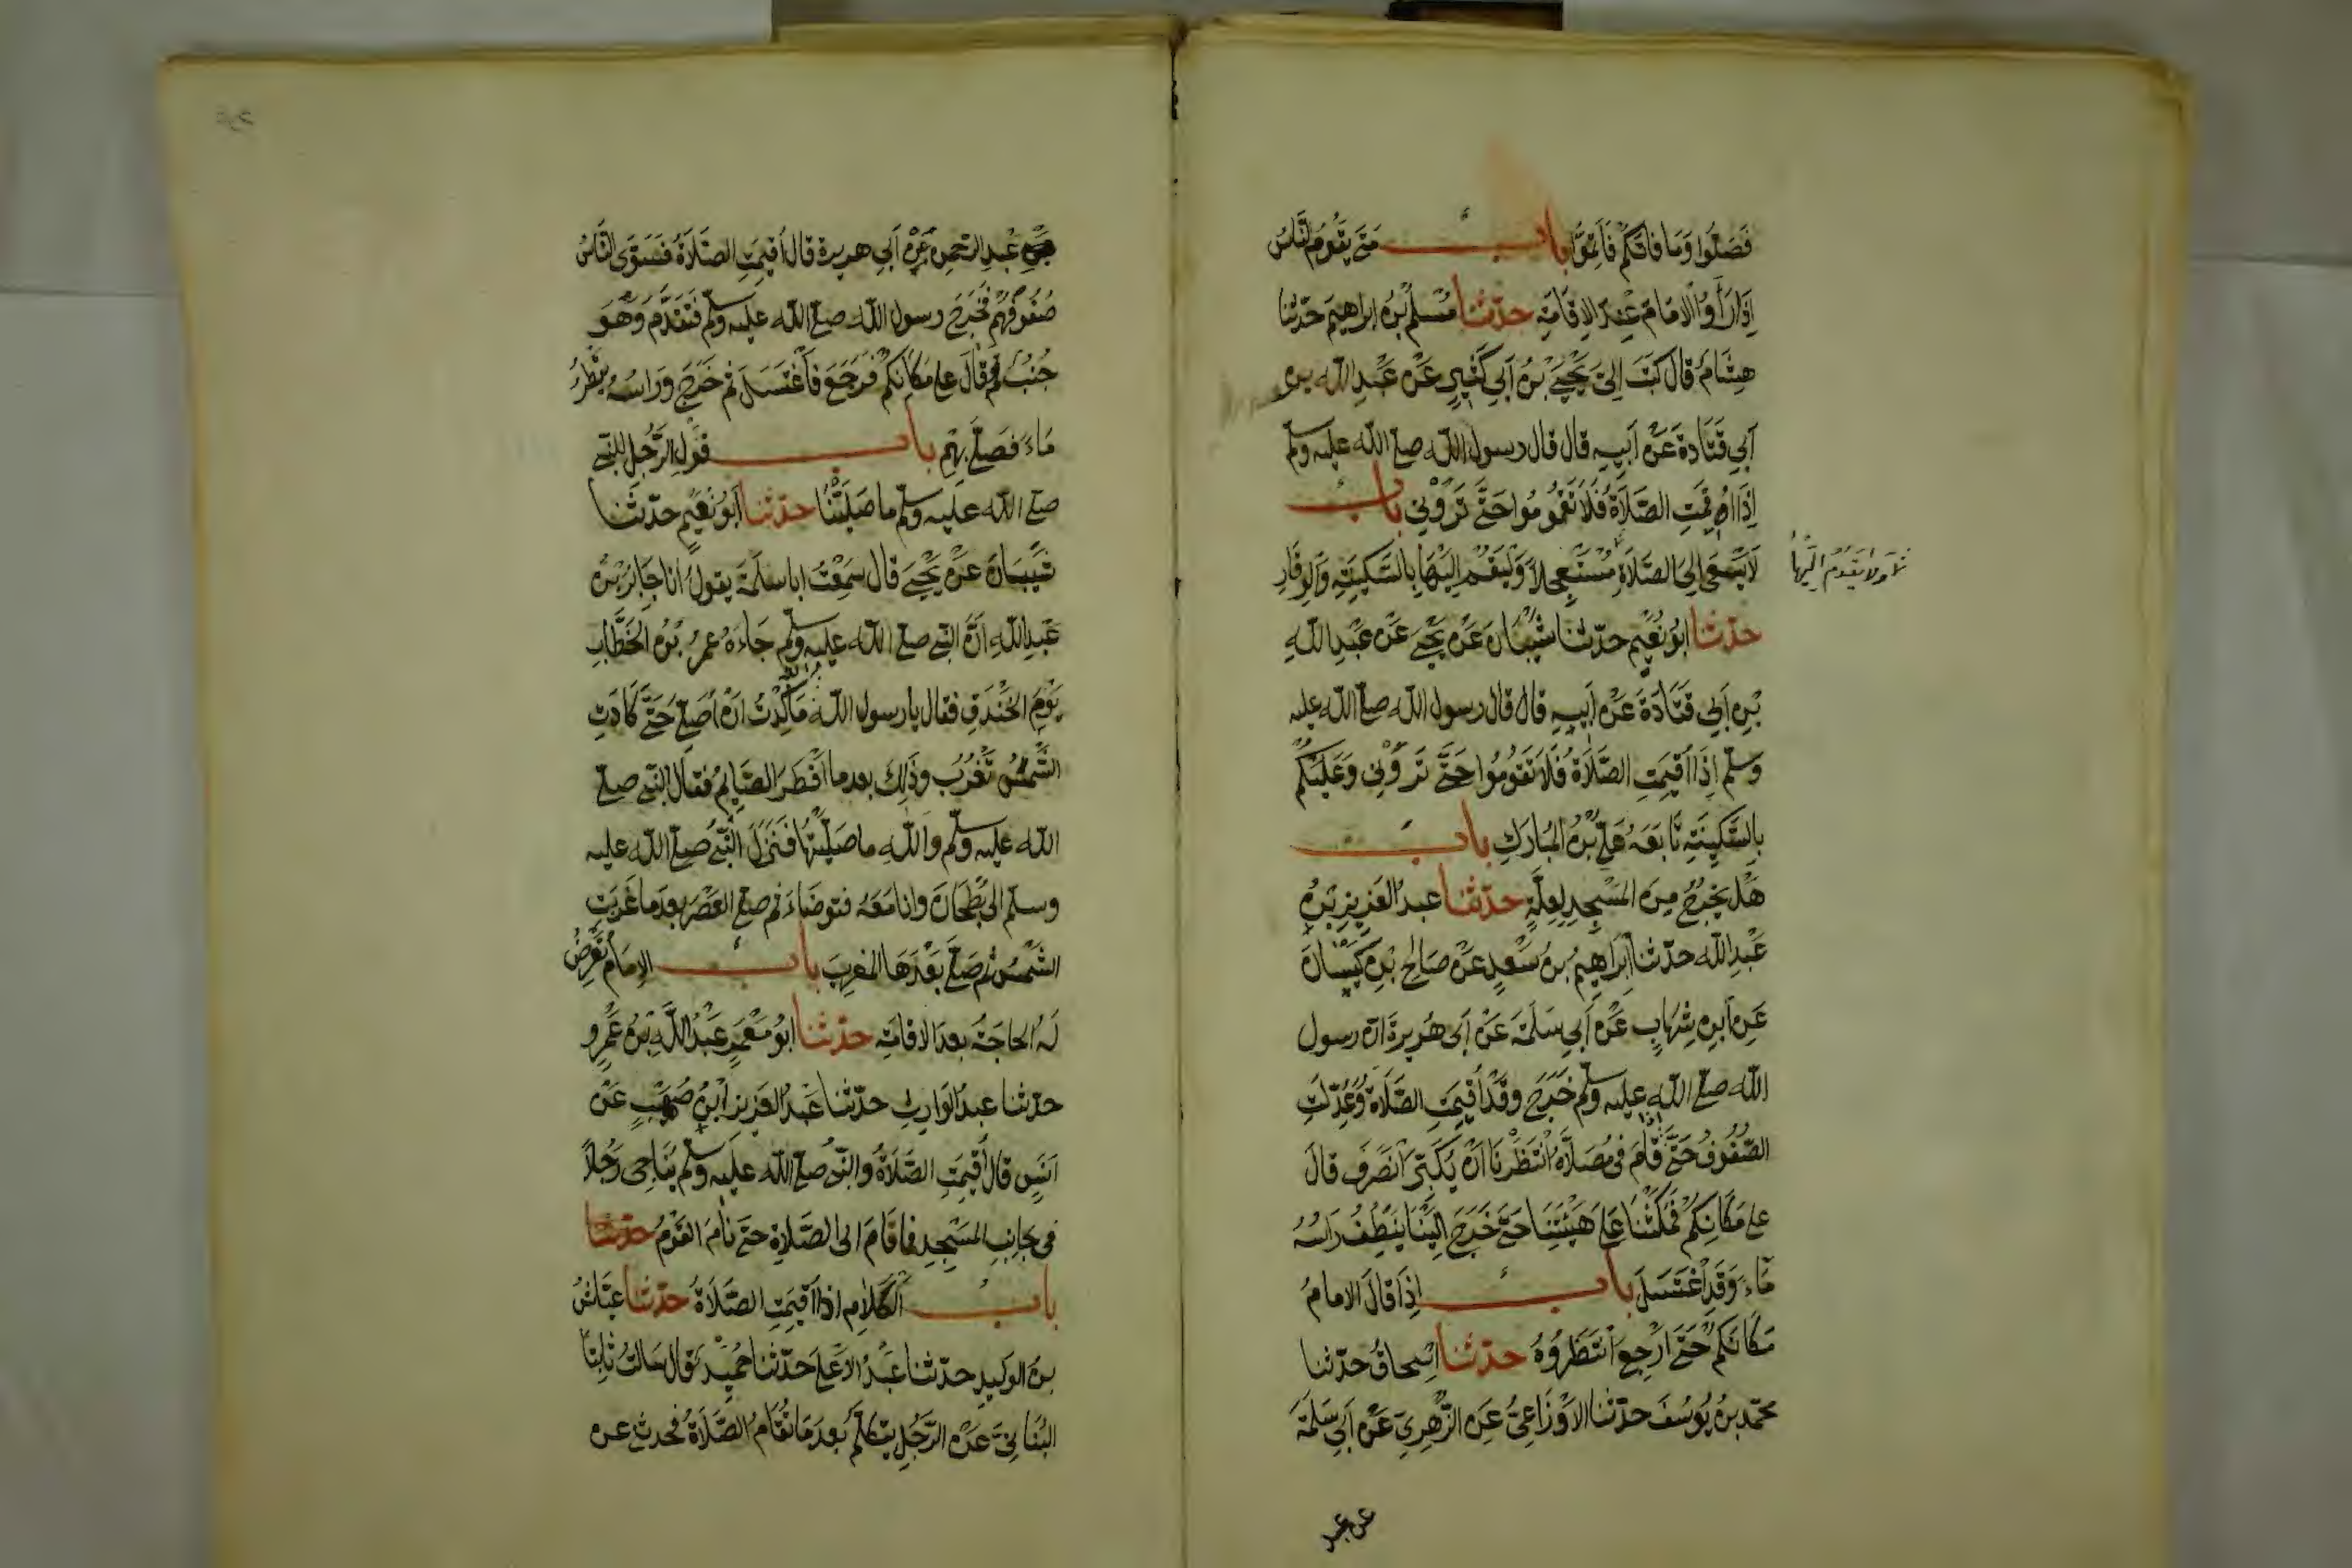 فَصَلُّوا وَمَا فَاتَكُمْ فَاَتِمُّوا باب مَتٰى يَقُومُ النَّاسُ
اِذَا رَأَوُا الْاِمَامَ عِنْدَ الْاِقَامَةِ حدّثنا مُسْلِمُ بْنُ اِبْرَاهِيمَ حَدَّثَنَا
هِشَامٌ قَالَ كَتَبَ اِلَىَّ يَحْيَى بْنُ اَبِي كَثِيرٍ عَنْ عَبْدِ اللّٰه بن
اَبِي قَتَادَةَ عَنْ اَبِيهِ قال قال رسول اللّٰه صلى اللّٰه عليه وسلم
اِذَا اُقِيمَتِ الصَّلَاةُ فَلَا تَقُومُوا حَتَّى تَرَوْنِي باب
لَا يَسْعَى اِلَى الصَّلَاةِ مُسْتَعْجِلًا وَلْيَقُمْ اِلَيْهَا بِالسَّكِينَةِ وَالْوَقَارِ
ولا يقوم اليها
حدّثنا اَبُو نُعَيْمٍ حدّثنا شَيْبَانُ عَنْ يَحْيَى عَنْ عَبْدِ اللّٰهِ
بْنِ اَبِي قَتَادَةَ عَنْ اَبِيهِ قال قال رسول اللّٰه صلى اللّٰه عليه
وسلم اِذَا اُقِيمَتِ الصَّلَاةُ فَلَا تَقُومُوا حَتَّى تَرَوْنِي وَعَلَيْكُمْ
بِالسَّكِينَةِ تَابَعَهُ عَلِيُّ بْنُ الْمُبَارَكِ باب
هَلْ يَخْرُجُ مِنَ الْمَسْجِدِ لِعِلَّةٍ حدّثنا عبد الْعَزِيزِ بْنُ
عَبْدِ اللّٰه حدّثنا اِبْرَاهِيمُ بْنُ سَعْدٍ عَنْ صَالِحِ بْنِ كَيْسَانَ
عَنِ ابْنِ شِهَابٍ عَنْ اَبِي سَلَمَةَ عَنْ اَبِي هُرَيْرَةَ ان رسول
اللّٰه صلى اللّٰه عليه وسلم خَرَجَ وَقَدْ اُقِيمَتِ الصَّلَاةُ وَعُدِّلَتِ
الصُّفُوفُ حَتَّى قَامَ فِى مُصَلَّاهُ انْتَظَرْنَا اَنْ يُكَبِّرَ انْصَرَفَ قَالَ
على مَكَانِكُمْ فَمَكَثْنَا عَلَى هَيْئَتِنَا حَتَّى خَرَجَ اِلَيْنَا يَنْطِفُ رَاْسُهُ
مَاءً وَقَدِ اغْتَسَلَ باب اِذَا قَالَ الامامُ
مَكَانَكُمْ حَتَّى اَرْجِعَ انْتَظَرُوهُ حدّثنا اِسْحَاقُ حدّثنا
محمّد بن يُوسُفَ حدّثنا الْاَوْزَاعِىُّ عَنِ الزُّهْرِيِّ عَنْ اَبِي سَلَمَةَ
عن عبد
بن عَبْدِ الرّحْمٰنِ عَنْ اَبِي هريرة قال اُقِيمَتِ الصَّلَاةُ فَسَوَّى النَّاسُ
صُفُوفَهُمْ فَخَرَجَ رسول اللّٰه صلى اللّٰه عليه وسلم فَتَقَدَّمَ وَهُوَ
جُنُبٌ ثم قَالَ على مَكَانِكُمْ فَرَجَعَ فَاغْتَسَلَ ثم خَرَجَ وَرَاسُهُ يَقْطُرُ
مَاءً فَصَلَّى بِهِمْ باب قَوْلِ الرَّجُلِ لِلنَّبِيِّ
صلى اللّٰه عليه وسلم ما صَلَّيْنَا حدّثنا اَبُو نُعَيْمٍ حدّثنا
شَيْبَانُ عَنْ يَحْيَى قال سَمِعْتُ ابا سلمة يقول انا جَابِرُ بْنُ
عَبْدِ اللّٰهِ اَنَّ النَّبِيَّ صلى اللّٰه عليه وسلم جَاءَهُ عُمَرُ بْنُ الْخَطَّابِ
يَوْمَ الْخَنْدَقِ فقال يا رسول اللّٰه مَا كِدْتُ اَنْ اُصَلِّيَ حَتَّى كَادَتِ
الشَّمْسُ تَغْرُبُ وَذٰلِكَ بعد ما اَفْطَرَ الصَّايِمُ فقال النّبي صلى
اللّٰه عليه وسلم وَاللّٰهِ ما صَلَّيْتُهَا فَنَزَلَ النَّبِيُّ صلى اللّٰه عليه
وسلم الى بُطْحَانَ وانا مَعَهُ فتوضاءَ ثم صلى العَصْرَ بعد ما غَرَبَتِ
الشَّمْسُ ثم صَلَّى بَعْدَهَا المَغْرِبَ باب الْاِمَامُ تَعْرِضُ
لَهُ الحاجَةُ بعد الاقامَةِ حدّثنا ابو مَعْمَرٍ عَبْدُ اللّٰهِ بْنُ عَمْرٍو
حدّثنا عبدُ الْوَارِثِ حدّثنا عَبْدُ الْعَزِيزِ ابْنُ صُهَيْبٍ عَنْ
اَنَسٍ قال اُقِيمَتِ الصَّلَاةُ والنّبيُّ صلى اللّٰه عليه وسلم يُنَاجِى رَجُلًا
فِى جَانِبِ المَسْجِدِ فما قَامَ الى الصَّلَاةِ حتى نَامَ القَوْمُ حدّثنا
باب الْكَلَامِ اذا اُقِيمَتِ الصَّلَاةُ حدّثنا عَيَّاشُ
بن الوَلِيدِ حدّثنا عَبْدُ الاَعْلَى حَدَّثَنَا حُمَيْدٌ قال سَالْتُ ثَابِتًا
البُنَانِيَّ عَنِ الرَّجُلِ يتَكَلَّمُ بعد مَا تُقَامُ الصَّلَاةُ فحدثنى عن